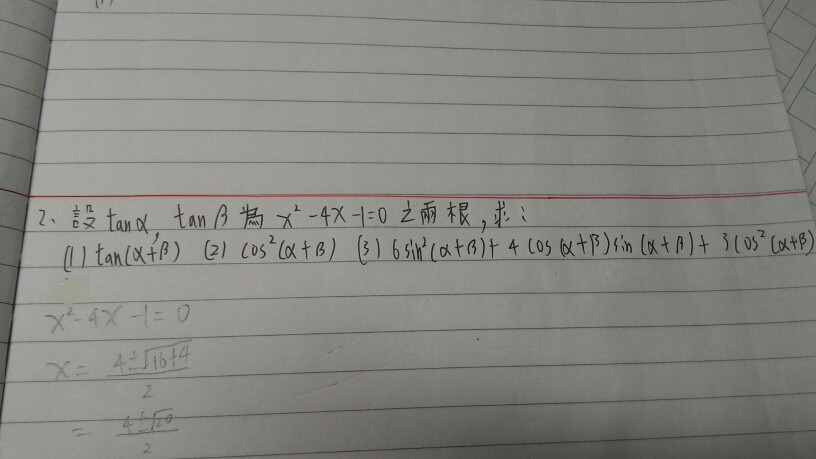 2、設 tanα, tanβ 為 x² -4x -1=0 之兩根，求：
(1) tan(α+β) (2) cos²(α+β) (3) 6sin²(α+β)+ 4 cos(α+β)sin(α+β)+ 3cos²(α+β)
x²-4x -1 = 0
x = 4±√16+4 / 2
= 4±√20 / 2